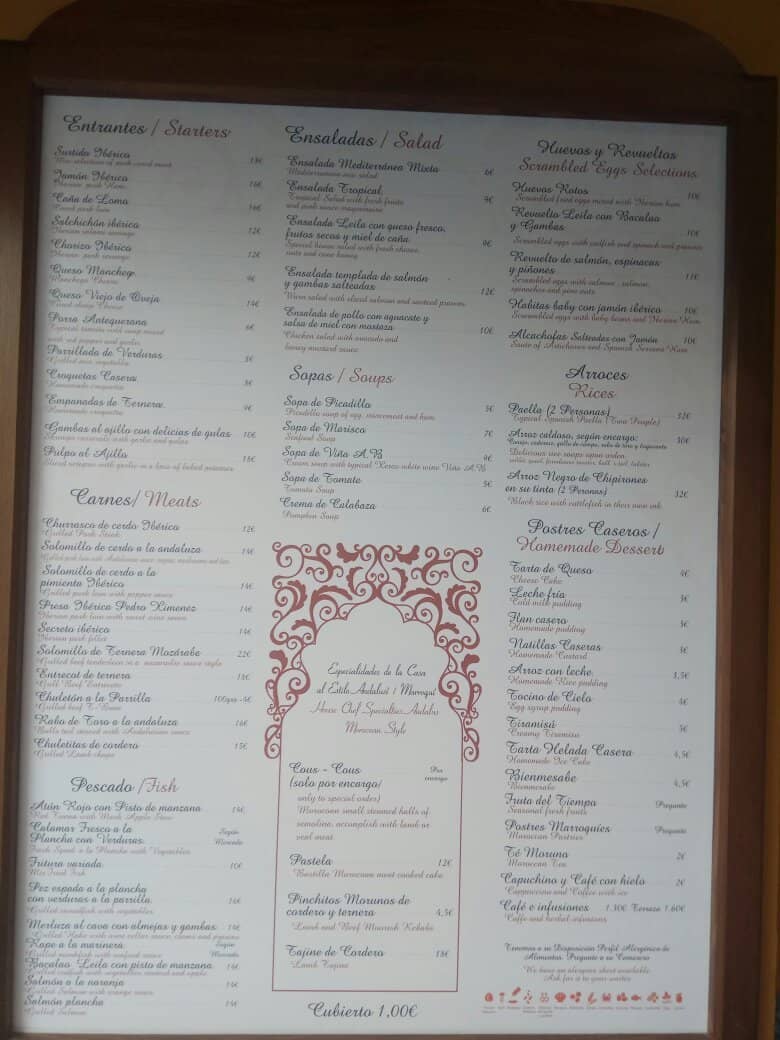 Entrantes / Starters
Surtido Ibérico
Mix selection of pork cured meat
Jamón Ibérico
Iberian pork Ham
Caña de Lomo
Cured pork loin
Salchichón ibérico 12€
Iberian salami sausage
Chorizo Ibérico 12€
Iberian pork sausage
Queso Manchego
Manchego Cheese
Queso Viejo de Oveja 14€
Porra Antequerana 6€
Typical tomato
with red pepper and garlic
Parrillada de Verduras
Grilled mix vegetables
Croquetas Casera
Homemade croquettes
Empanadas de Ternera
Homemade croquettes
Gambas al ajillo con delicias de gulas
Shrimps casserole with garlic and gulas
Pulpo al Ajillo
Carnes/ Meats
Churrasco de cerdo Ibérico 12€
Grilled Pork Steak
Solomillo de cerdo a la andaluza 14€
Solomillo de cerdo a la
pimienta Ibérico 14€
Grilled pork loin with pepper sauce
Presa Ibérica Pedro Ximenez 14€
Iberian pork loin with sweet wine sauce
Secreto ibérico 14€
Iberian pork fillet
Solomillo de Ternera Mozárabe 22€
Grilled beef tenderloin in a mozarabic sauce style
Entrecot de ternera
Grill Beef Entrecote
Chuletón a la Parrilla
Grilled beef T-Bone
Rabo de Toro a la andaluza
Bulls tail stewed with Andalusian sauce
Chuletitas de cordero 15€
Grilled Lamb chops
Pescado /Fish
Atún Rojo con Pisto de manzana
Red Tuna with Mash Apple Stew
Calamar Fresco a la Según
Plancha con Verduras Mercado
Fresh Squid a la Plancha with Vegetables
Fritura variada 10€
Mix Fried Fish
Pez espada a la plancha
con verduras a la parrilla
Grilled swordfish with vegetables
Merluza al cava con almejas y gambas
Grilled Hake with cava cellar sauce, clams and prawns
Rape a la marinera Según
Grilled monkfish with seafood sauce Mercado
Bacalao Leila con pisto de manzana
Salmón a la naranja
Grilled Salmon with orange sauce
Salmón plancha
Grilled Salmon
Ensaladas / Salad
Ensalada Mediterránea Mixta 6€
Mediterranean mix salad
Ensalada Tropical 9€
Tropical Salad with fresh fruits
and pink sauce mayonnaise
Ensalada Leila con queso fresco,
frutos secos y miel de caña 9€
Special house salad with fresh cheese,
nuts and cane honey
Ensalada templada de salmón
y gambas salteadas 12€
Warm salad with sliced salmon and sauteed prawns
Ensalada de pollo con aguacate y
salsa de miel con mostaza 10€
Chicken salad with avocado and
honey mustard sauce
Sopas / Soups
Sopa de Picadillo 5€
Picadillo soup of egg, mincemeat and ham
Sopa de Marisco 7€
Seafood Soup
Sopa de Viña A.B
Cream soup with typical Xerez white wine Viña A.B
Sopa de Tomate 5€
Tomato Soup
Crema de Calabaza 6€
Pumpkin Soup
Especialidades de la Casa
al Estilo Andalusí / Marroquí
House Chef Specialties Andalus
Moroccan Style
Cous - Cous Por
(solo por encargo/ encargo
only to special order)
Moroccan small steamed balls of
semolina, accomplish with lamb or
veal meat
Pastela 12€
Bastilla Moroccan meat cooked cake
Pinchitos Morunos de
cordero y ternera 4,5€
Lamb and Beef Moorish Kebabs
Tajine de Cordero
Lamb Tajine
Cubierto 1,00€
Huevos y Revueltos
Scrambled Eggs Selections
Huevos Rotos 10€
Scrambled fried eggs mixed with Iberian ham
Revuelto Leila con Bacalao
y Gambas 10€
Scrambled eggs with codfish and spinach and prawns
Revuelto de salmón, espinacas
y piñones 11€
Scrambled eggs with salmon, salmon,
spinaches and pine nuts
Habitas baby con jamón ibérico 10€
Scrambled eggs with baby beans and Iberian Ham
Alcachofas Salteadas con Jamón 10€
Saute of Artichokes and Spanish Serrano Ham
Arroces
Rices
Paella (2 Personas) 32€
Typical Spanish Paella (Two People)
Arroz caldoso, según encargo:
Delicious rice soups upon order:
Arroz Negro de Chipirones
en su tinta (2 Peronas) 32€
Black rice with cuttlefish in their own ink
Postres Caseros /
Homemade Dessert
Tarta de Queso 4€
Cheese Cake
Leche fría 3€
Cold milk pudding
Flan casero 3€
Homemade pudding
Natillas Caseras 3€
Homemade Custard
Arroz con leche 3,5€
Homemade Rice pudding
Tocino de Cielo 4€
Egg syrup pudding
Tiramisú 5€
Creamy Tiramisu
Tarta Helada Casera 4,5€
Homemade Ice Cake
Bienmesabe 4,5€
Bienmesabe
Fruta del Tiempo Pregunte
Seasonal fresh fruits
Postres Marroquíes Pregunte
Moroccan Pastries
Té Moruno 2€
Moroccan Tea
Capuchino y Café con hielo 2€
Cappuccino and Coffee with ice
Café e infusiones 1.30€ Terraza 1.60€
Coffe and herbal infusions
Tenemos a su Disposición Perfil Alergénico de
Alimentos. Pregunte a su Camarero
We have an alergens sheet available
Ask for it to your waiter